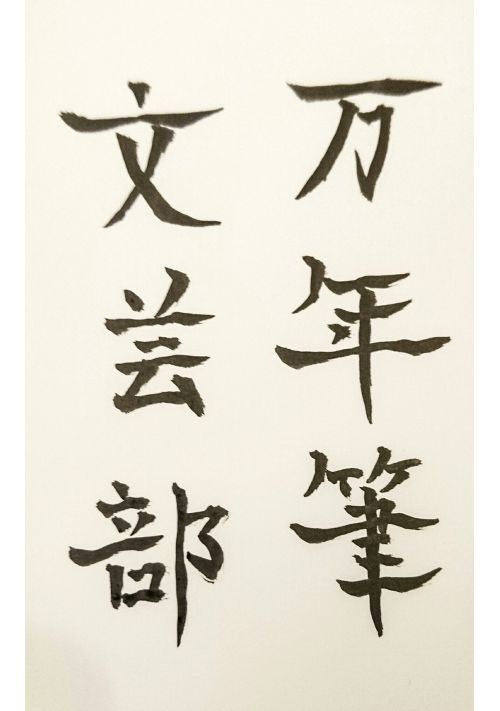 万年筆
文芸部